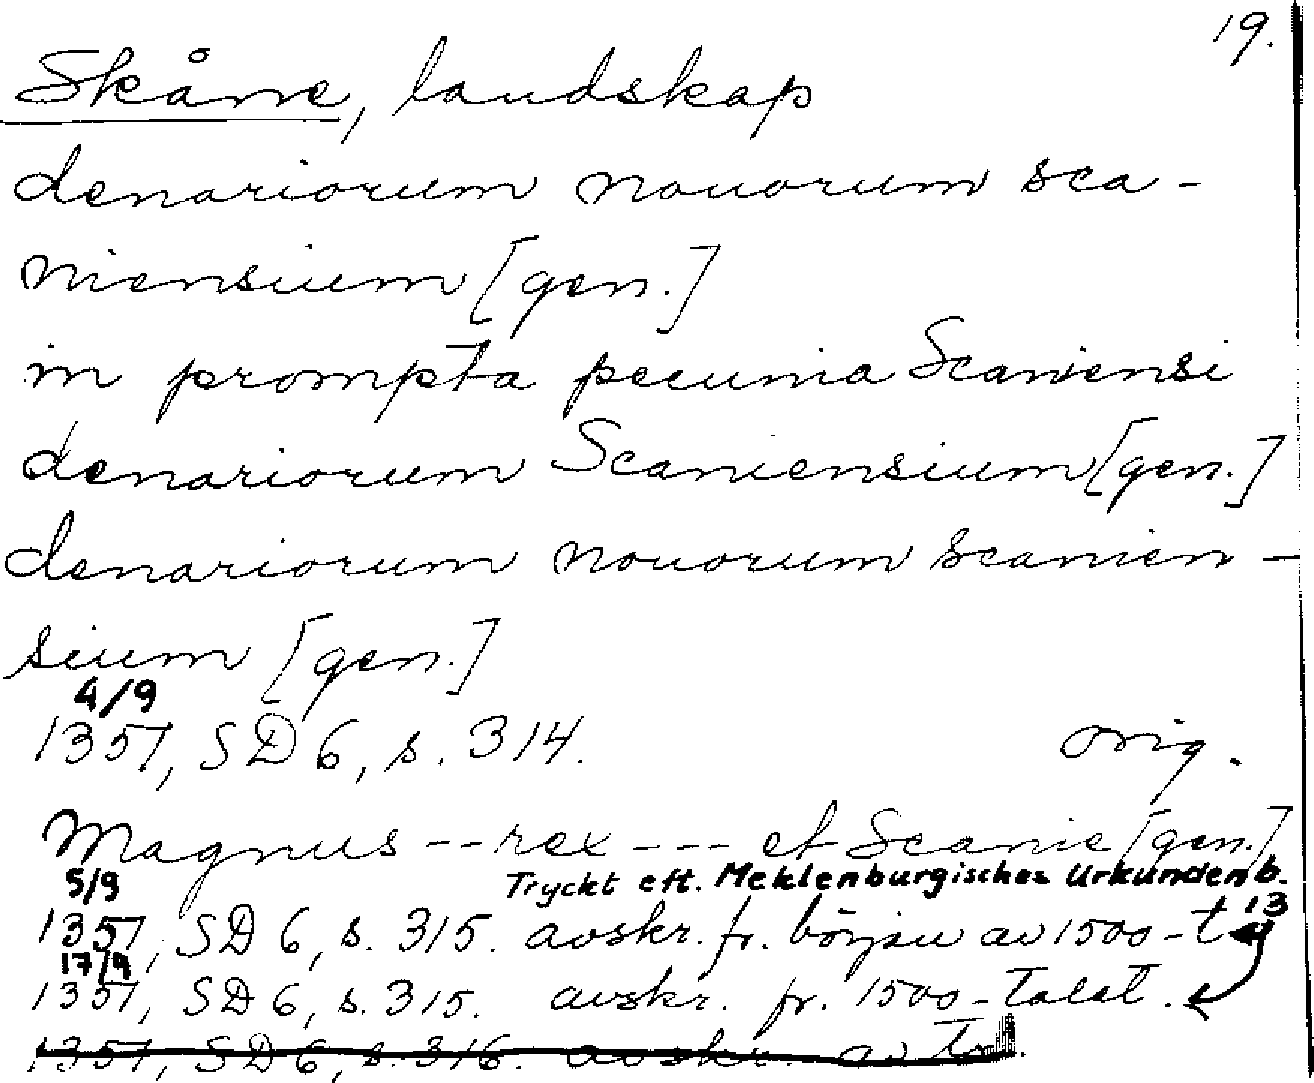 19.
Skåne, landskap
denariorum nouorum sca-
niensium [gen.]
in prompta pecunia Scaniensi
denariorum Scaniensium [gen.]
denariorum nouorum scanien-
sium [gen.]
4/9
1357, SD 6, s. 314. orig.
Magnus -- rex --- et Scanie [gen.]
5/9 Tryckt eft. Meklenburgisches Urkundenb.
13
1357, SD 6, s. 315. avskr. fr. början av 1500-t
17/9
1357, SD 6, s. 315. avskr. fr. 1500-talet.
1357, SD 6, s. 316. avskr. av